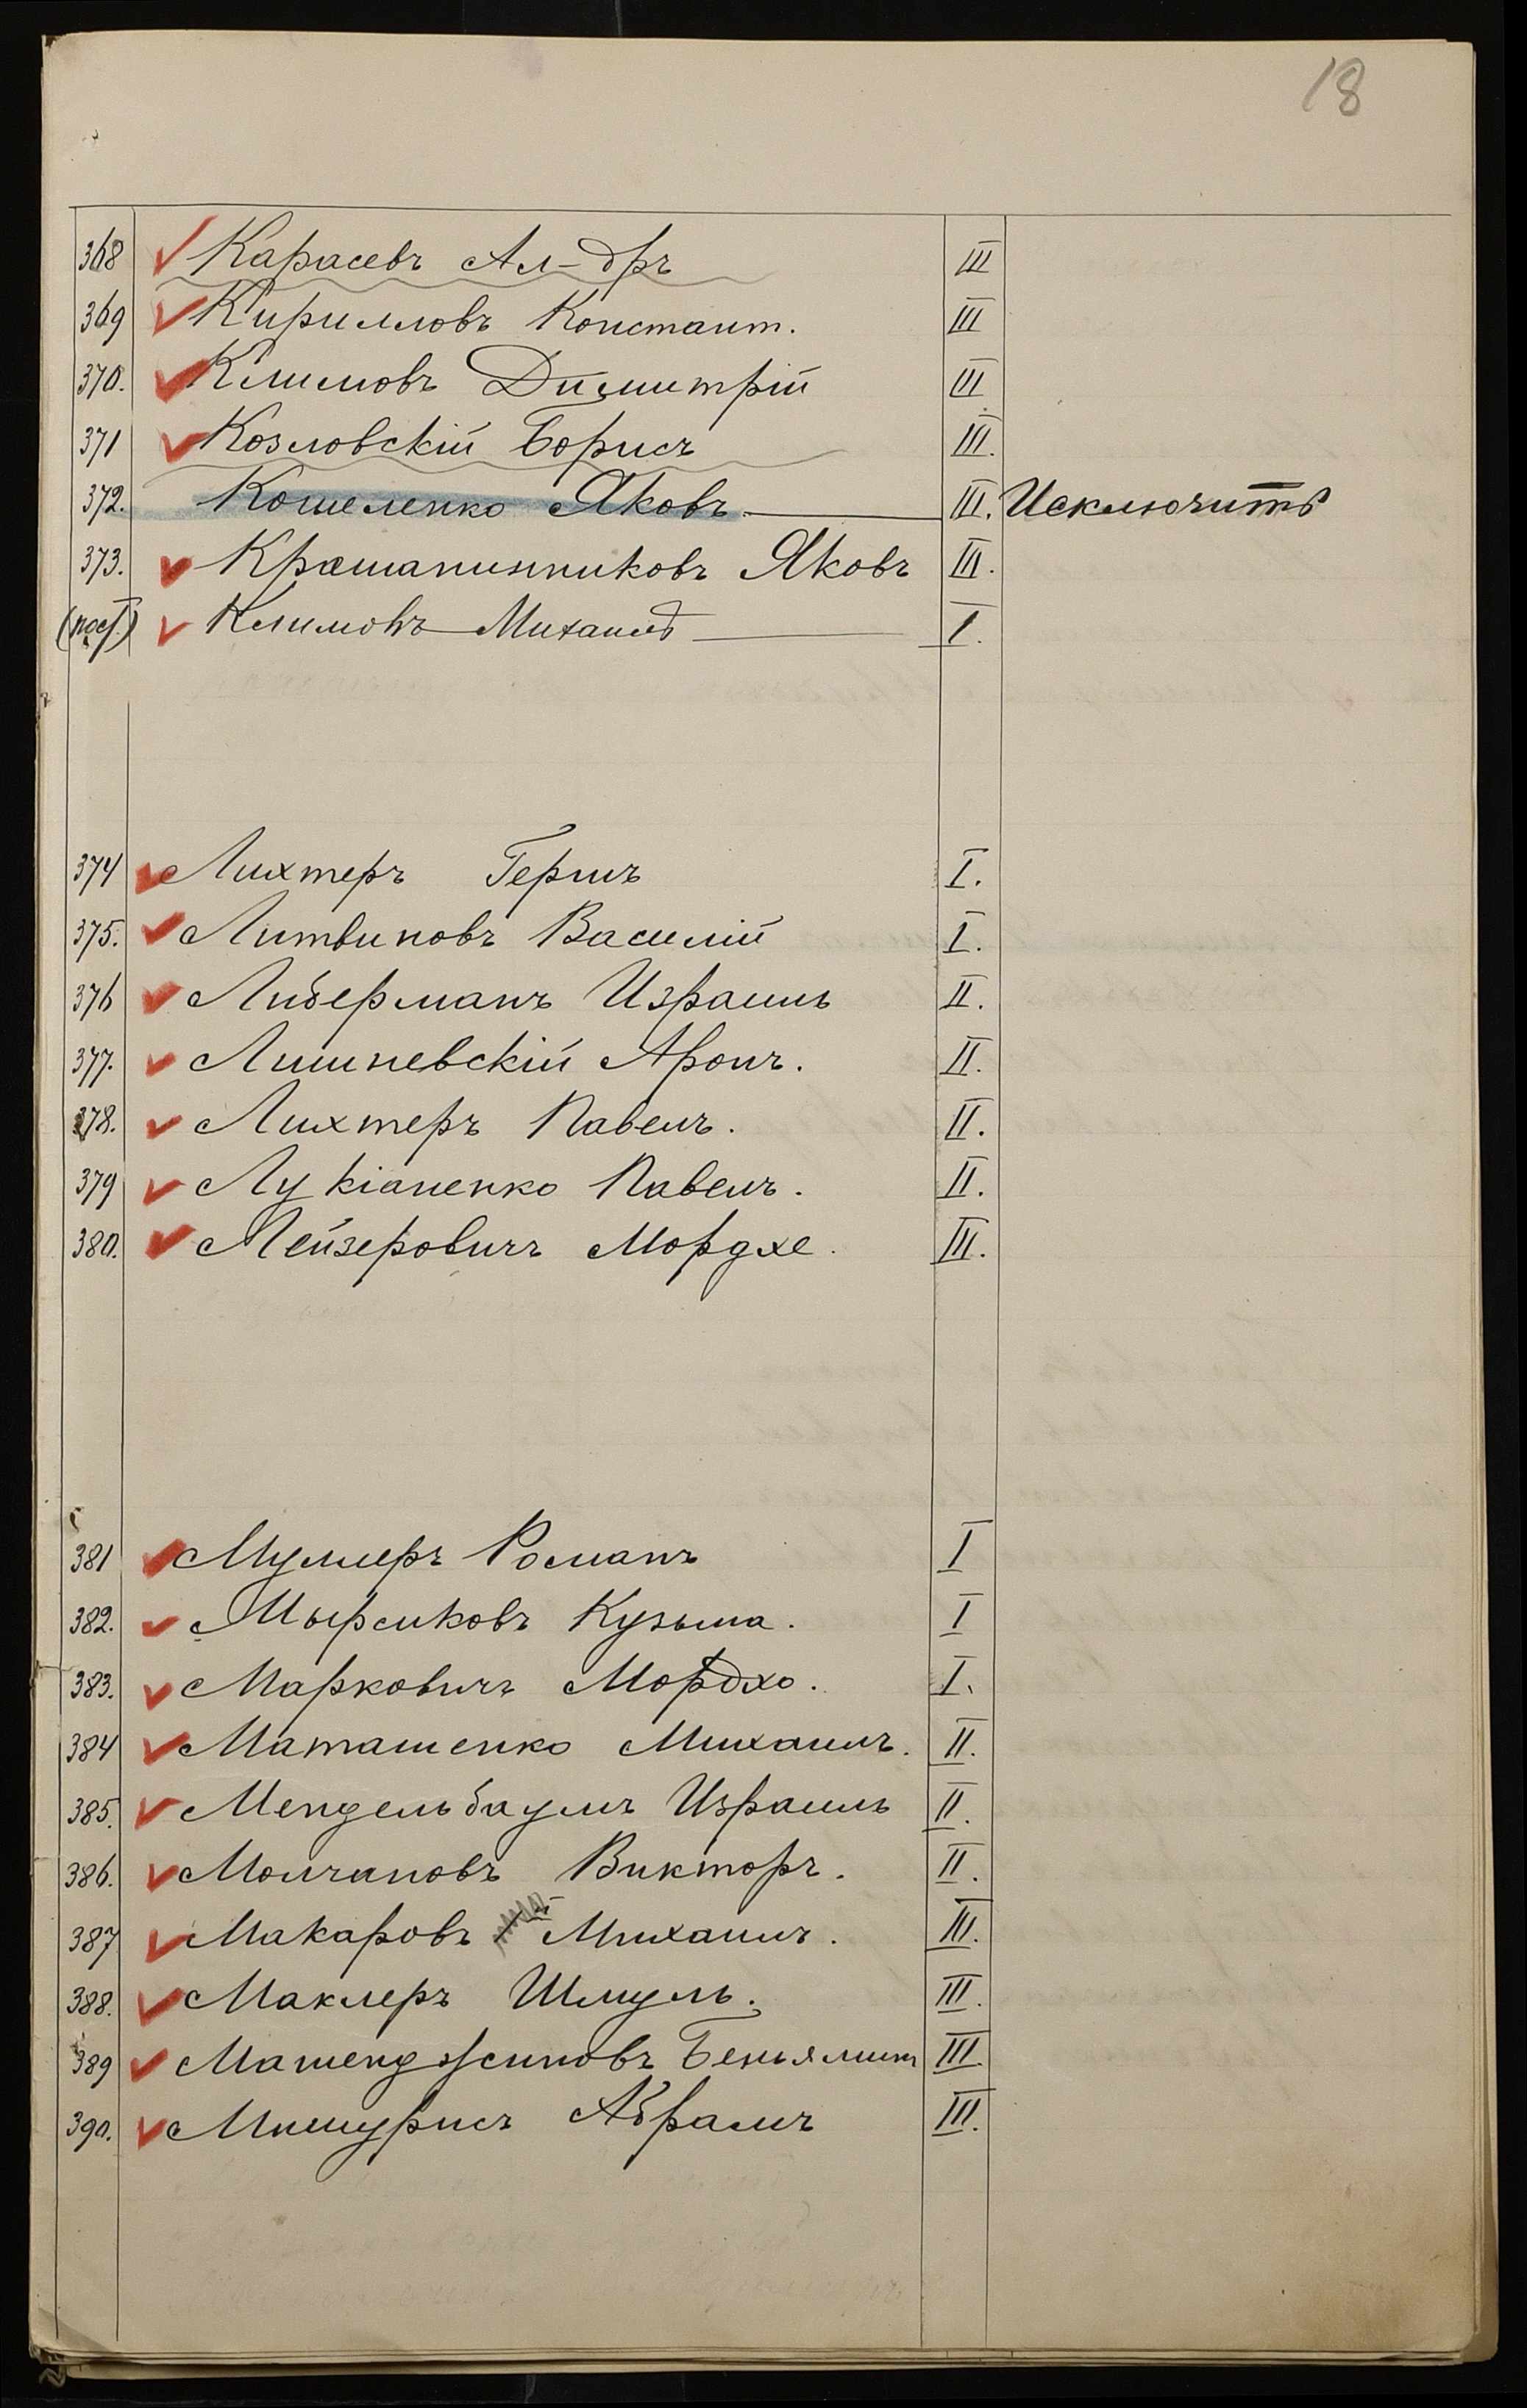 18
368 Карасевъ Ал-дръ III
369 Кирилловъ Констант. III
370. Климовъ Димитрій III
371 Козловскій Борисъ III.
372. Кошеленко Яковъ III. Исключить
373. Крашанинниковъ Яковъ III.
Климовъ Михаилъ I.
374 Лихтеръ Гершъ I.
375. Литвиновъ Василій I.
376 Либерманъ Израиль II.
377. Лишневскій Аронъ. II.
378. Лихтеръ Павелъ. II.
379 Лукіаненко Павелъ. II.
380. Лейзеровичъ Мордхе. III.
381 Муллеръ Романъ I
382. Мырсиковъ Кузьма. I
383. Марковичъ Мордхо. I.
384 Маташенко Михаилъ. II.
385. Мендельбаумъ Израиль II.
386. Молчановъ Викторъ. II.
387 Макаровъ Михаилъ. III.
388. Маклеръ Шмуль. III.
389 Машенджиновъ Беньямин III.
390. Мишурисъ Абрамъ III.